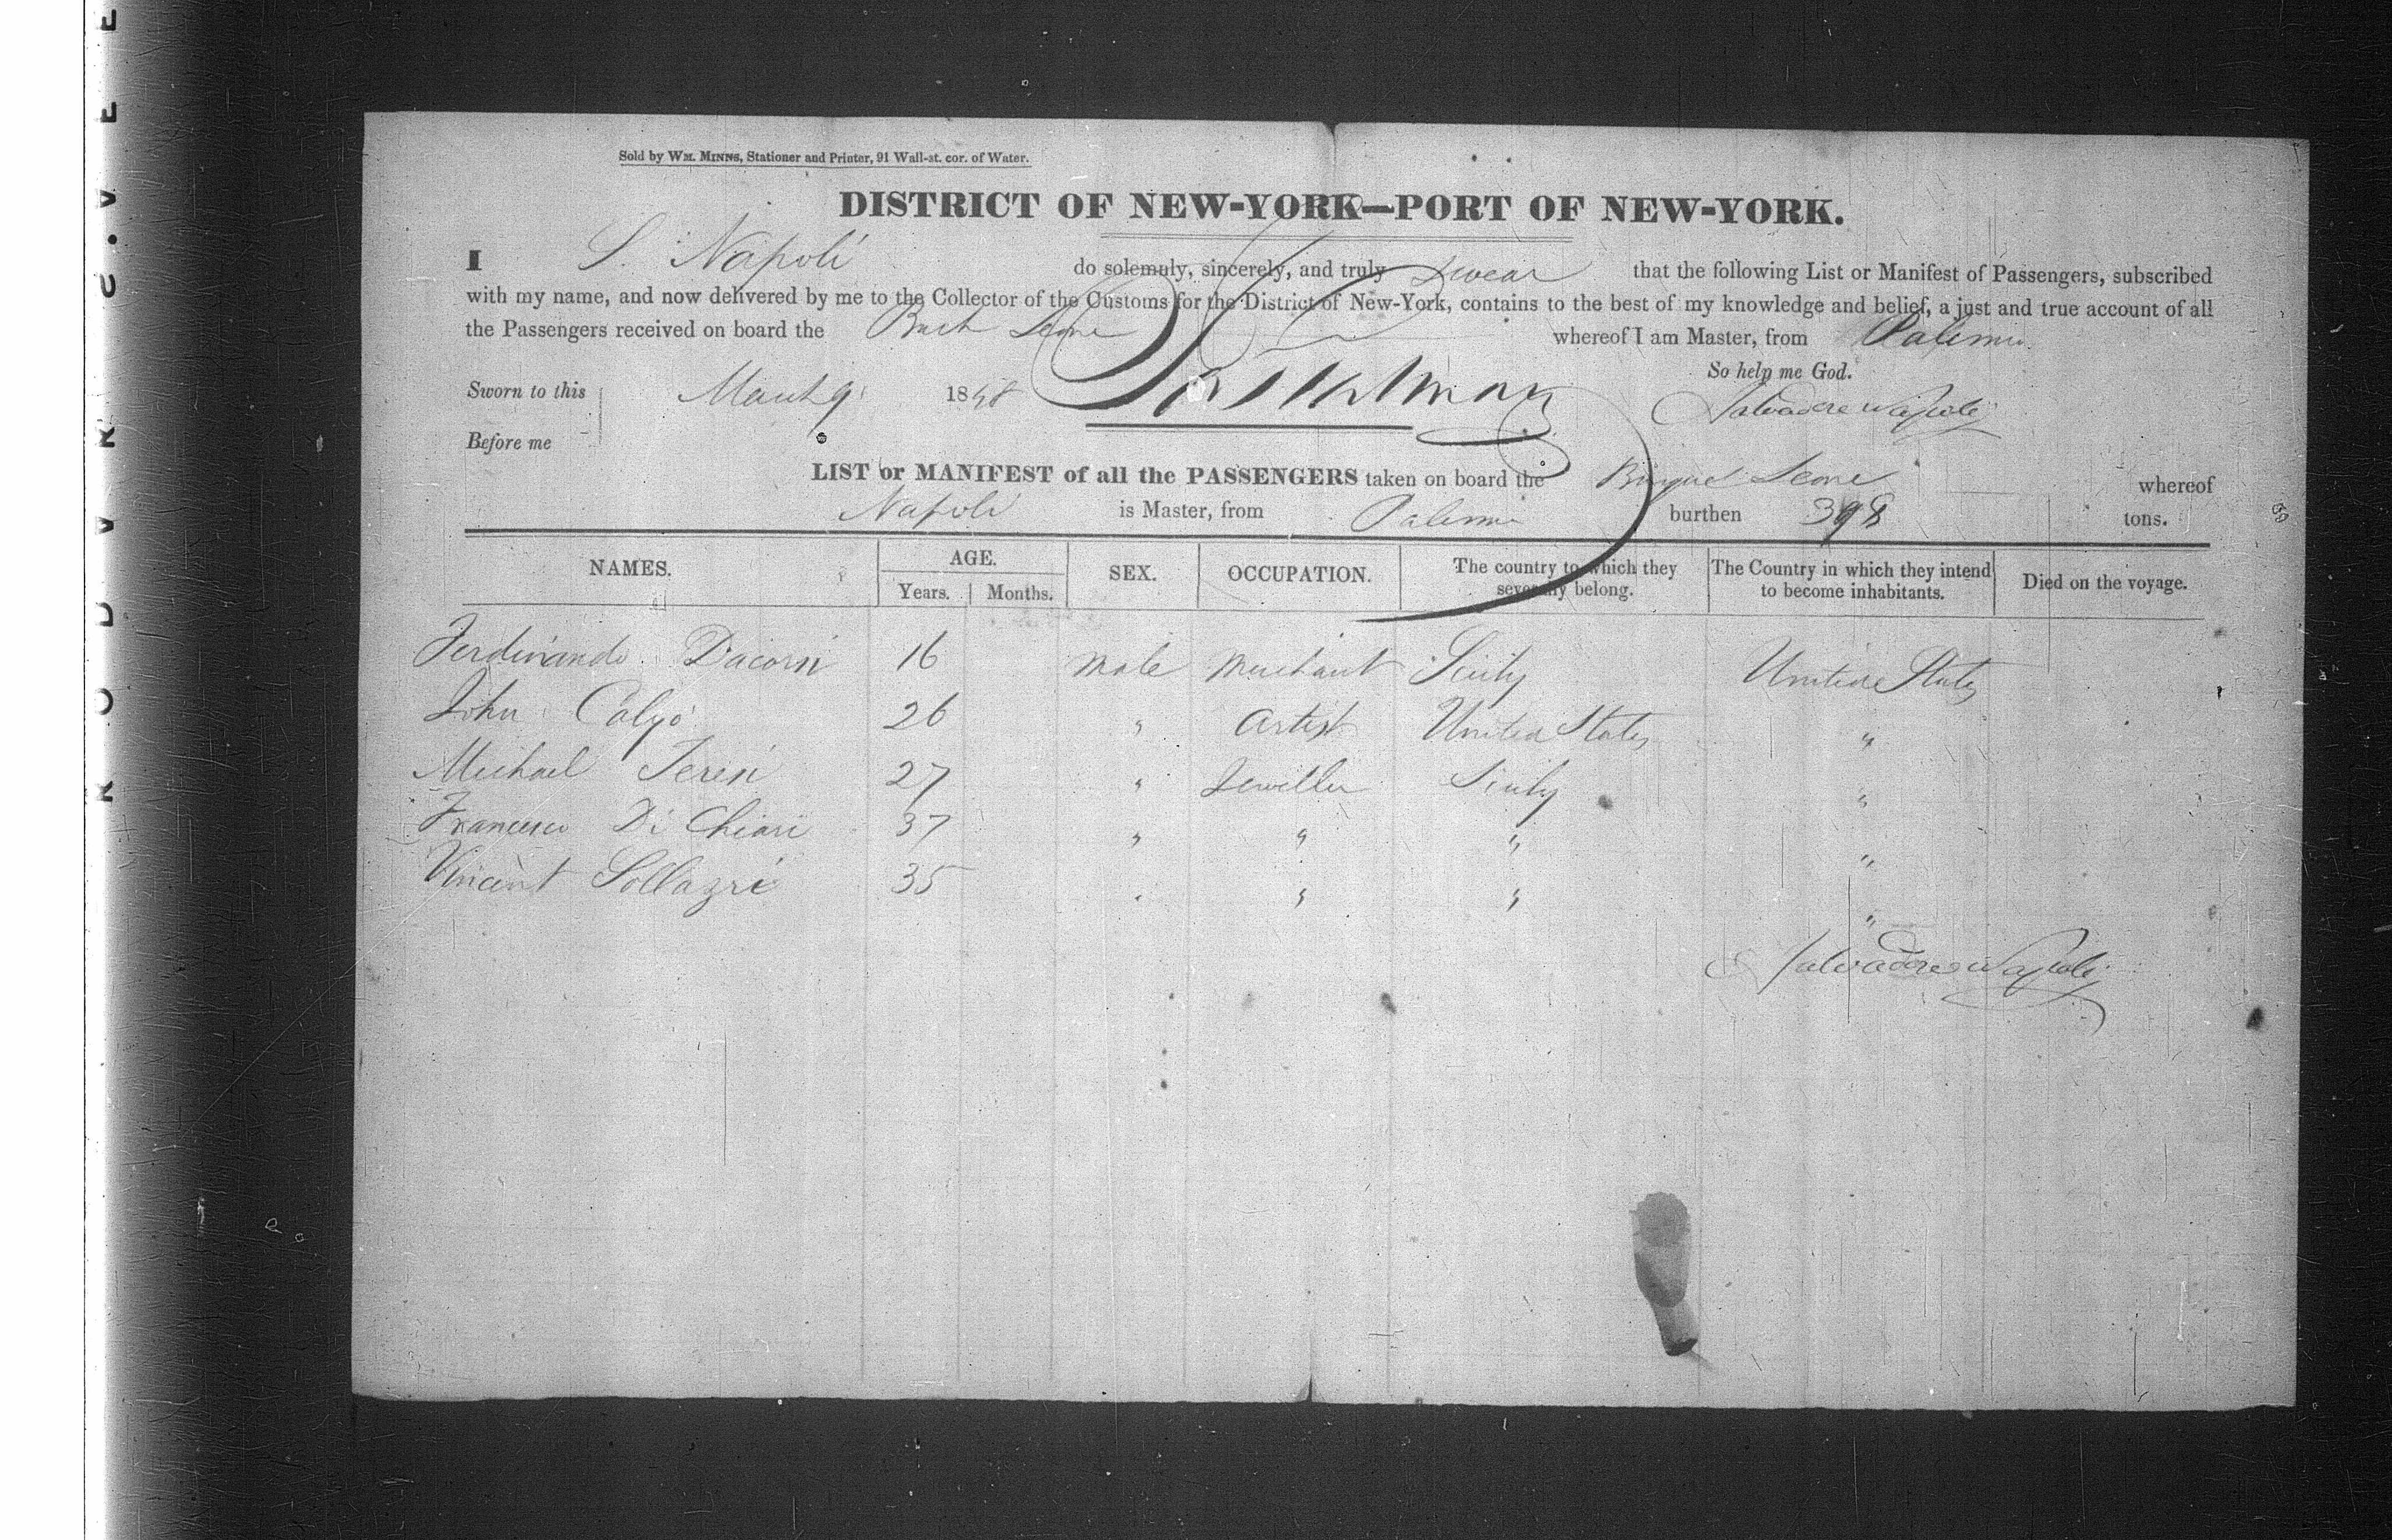 Sold by WM. MINNS, Stationer and Printer, 91 Wall-st. cor. of Water.
DISTRICT OF NEW-YORK—PORT OF NEW-YORK.
I S. Napoli do solemnly, sincerely, and truly Swear that the following List or Manifest of Passengers, subscribed
with my name, and now delivered by me to the Collector of the Customs for the District of New-York, contains to the best of my knowledge and belief, a just and true account of all
the Passengers received on board the Bark Leone whereof I am Master, from Palermo
So help me God.
Sworn to this March 9 1848
Salvadore Napoli
Before me
LIST or MANIFEST of all the PASSENGERS taken on board the Barque Leone whereof
Napoli is Master, from Palermo burthen 398 tons.
NAMES. AGE. Years. Months. SEX. OCCUPATION. The country to which they severally belong. The Country in which they intend to become inhabitants. Died on the voyage.
Ferdinando Dacorsi 16 male Merchant Sicily United States
John Calyo 26 " Artist United States "
Michael Teresi 27 " Jeweller Sicily "
Francesco Di Chiari 37 " " " "
Vincent Sollazzi 35 " " " "
Salvadore Napoli